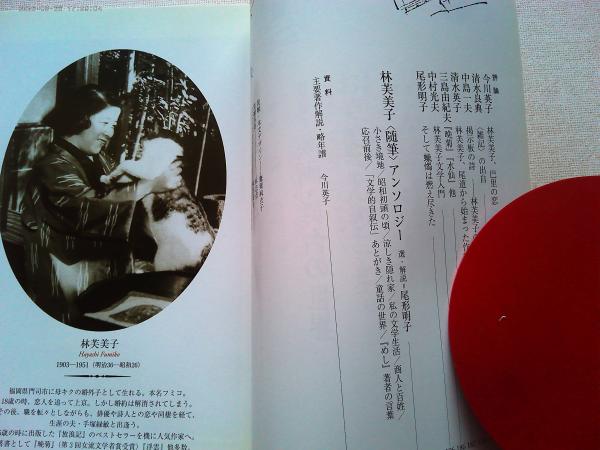 評論
今川英子 林芙美子、巴里の恋
清水良典 〈雑記〉の出自
中島一夫 掲示板の詩 林芙美子
清水英子 林芙美子、尾道から始まった作
三島由紀夫 『晩菊』『水仙』他
中村光夫 林芙美子文学入門
尾形明子 そして蠟燭は燃え尽きた
林芙美子〈随筆〉アンソロジー 選・解説=尾形明子
小さき境地/昭和初頭の頃/涼しき隠れ家/私の文学生活/商人と百姓/
応召前後/「文学的自叙伝」あとがき/童話の世界/『めし』著者の言葉
資料
主要著作解説・略年譜 今川英子
林芙美子
Hayashi Fumiko
1903―1951(明治36―昭和26)
福岡県門司市に母キクの婚外子として生れる。本名フミコ。
18歳の時、恋人を追って上京。しかし婚約は解消されてしまう。
その後、職を転々としながらも、俳優や詩人との恋や同棲を経て、
生涯の夫・手塚緑敏と出逢う。
歳の時に出版した『放浪記』のベストセラーを機に人気作家へ。
著書として『晩菊』(第3回女流文学者賞受賞)『浮雲』他多数。